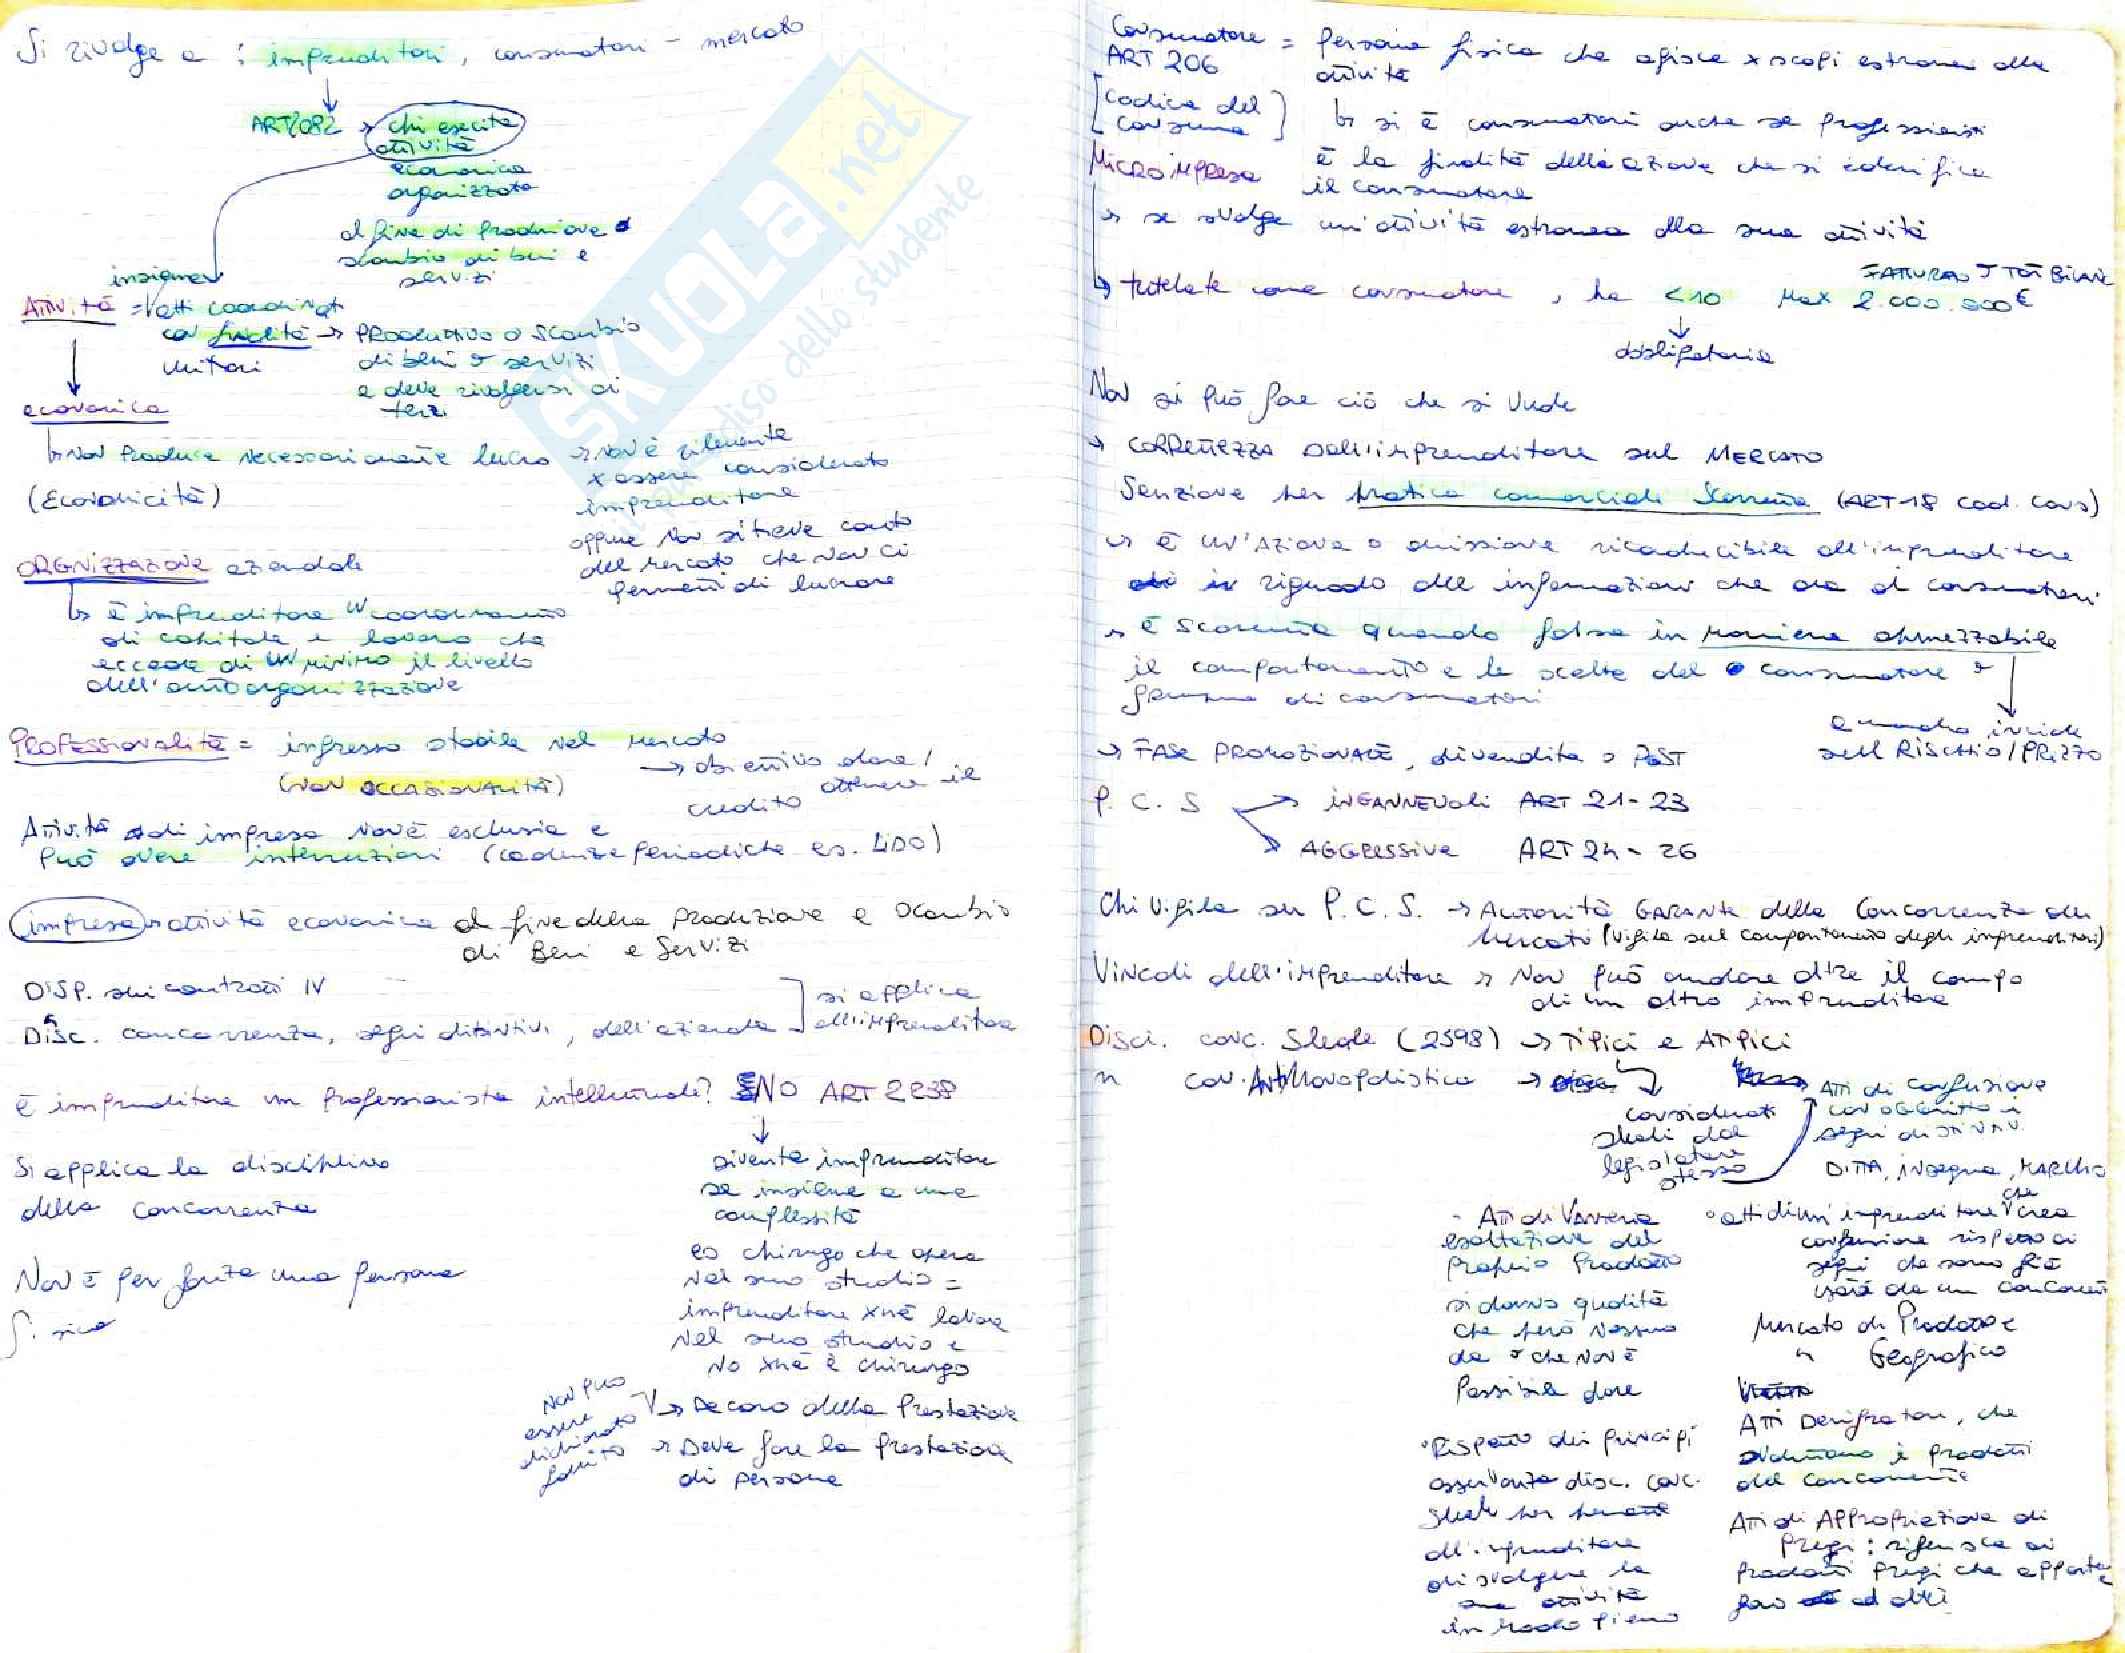 Si rivolge a : imprenditori, consumatori - mercato
ART 2082 → chi esercita
attività
economica
organizzata
al fine di produzione o
scambio di beni e
servizi
insieme
ATTività = atti coordinati
con finalità → PRODUTTIVO O SCAMBIO
unitari
di beni o servizi
e deve rivolgersi ai
terzi
economica
↳ NON PRODUCE NECESSARIAMENTE lucro → NON È rilevante
x essere considerato
imprenditore
(Economicità)
oppure NON si tiene conto
del mercato che NON ci
permetti di lucrare
ORGNIZZAZIONE aziendale
↳ è imprenditore un coordinamento
di capitale e lavoro che
eccede di UN MINIMO il livello
dell'autoorganizzazione
PROFESSIONALITÀ = ingresso stabile nel mercato
(NON OCCASIONALITÀ)
→ obiettivo dare/
ottenere il
credito
Attività di impresa NON È esclusiva e
può avere interruzioni (cadenze periodiche es. LIDO)
impresa → attività economica al fine della PRODUZIONE e SCAMBIO
di Beni e Servizi
DISP. sui contratti IV
DISC. concorrenza, segni distintivi, dell'azienda
si applica
all'imprenditore
È imprenditore un professionista intellettuale? NO ART 2238
↓
diventa imprenditore
se insieme a una
complessità
es chirurgo che opera
nel suo studio =
imprenditore xkè lavora
nel suo studio e
NO xkè è chirurgo
Si applica la disciplina
della concorrenza
NON È per forza una persona
fisica
NON può
essere
dichiarato
fallito
→ DECORO della Prestazione
→ Deve fare la prestazione
di persona
Consumatore = persona fisica che agisce x scopi estranei alla
ART 206
attività
[codice del
consumo]
↳ si è consumatori anche se professionisti
MICROIMPRESA
è la finalità della azione che si identifica
il consumatore
→ se svolge un'attività estranea alla sua attività
↳ tutelate come consumatore, ha <10 MAX 2.000.000€
FATTURATO TOT BILANC
↓
obbligatorio
Non si può fare ciò che si vuole
→ CORRETTEZZA Dell'imprenditore sul MERCATO
Sanzione per pratica commerciale Scorretta (ART 18 cod. cons)
→ È UN'AZIONE o omissione riconducibile all'imprenditore
in riguardo alle informazioni che dà ai consumatori
→ È SCORRETTA quando falsa in maniera apprezzabile
il comportamento e le scelte del consumatore o
gruppo di consumatori
↓
quando incide
sul RISCHIO/PREZZO
→ FASE PROMOZIONALE, di vendita o POST
P. C. S → INGANNEVOLI ART 21-23
→ AGGRESSIVE ART 24-26
Chi vigila su P. C. S. → AUTORITÀ GARANTE della Concorrenza
Mercato (Vigila sul comportamento degli imprenditori)
Vincoli dell'imprenditore → Non può andare oltre il campo
di un altro imprenditore
Disci. conc. Sleale (2598) → TIPICI e ATIPICI
" con. AntiMonopolistica →
considerati
sleali dal
legislatore
stesso
ATTI di confusione
con oggetto i
segni distintivi
DITTA, insegna, MARCHIO
atti di un imprenditore che crea
confusione rispetto ai
segni che sono già
usati da un concorrent
Mercato di Prodotto e
" Geografico
ATTI DENIGRATORI, che
svalutano i prodotti
del concorrente
ATTI di APPROPRIAZIONE di
pregi: riferisce ai
prodotti pregi che apparte
ad altri
- ATTI di Vanteria
esaltazione del
proprio Prodotto
si danno qualità
che però nessuno
dà o che NON È
Possibile dare
• RISPETTO dei principi
osservanza disc. conc.
sleale per
all'imprenditore
di svolgere la
sua attività
in modo pieno
SKUOLA.net
il paradiso dello studente